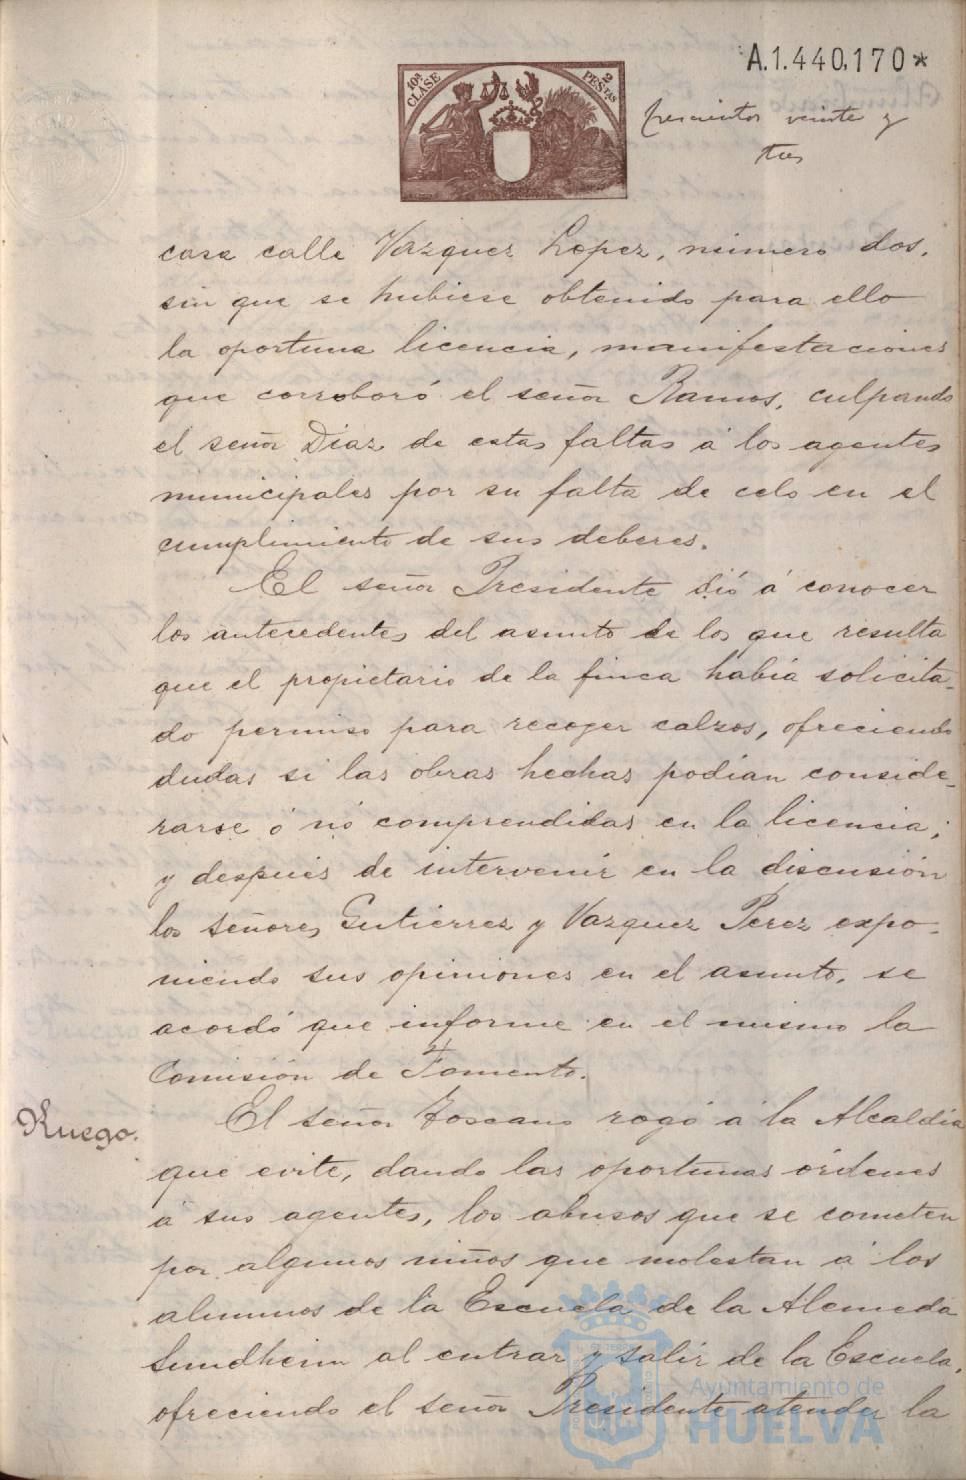 A.1.440,170*
10ª CLASE
2 PESTAS
trescientos veinte y
tres
casa calle Vazquez Lopez, número dos,
sin que se hubiese obtenido para ello
la oportuna licencia, manifestaciones
que corroboró el señor Ramos, culpando
el señor Diaz de estas faltas á los agentes
municipales por su falta de celo en el
cumplimiento de sus deberes.
El señor Presidente dió á conocer
los antecedentes del asunto de los que resulta
que el propietario de la finca habia solicita-
do permiso para recoger calzos, ofreciendo
dudas si las obras hechas podian conside-
rarse ó nó comprendidas en la licencia;
y después de intervenir en la discusión
los señores Gutierrez y Vazquez Perez expo-
niendo sus opiniones en el asunto, se
acordó que informe en el mismo la
Comisión de Fomento.
Ruego.
El señor Toscano rogó á la Alcaldia
que evite, dando las oportunas órdenes
á sus agentes, los abusos que se cometen
por algunos niños que molestan á los
alumnos de la Escuela de la Alameda
Sundheim al entrar y salir de la Escuela,
ofreciendo el señor Presidente atender la
Ayuntamiento de
HUELVA